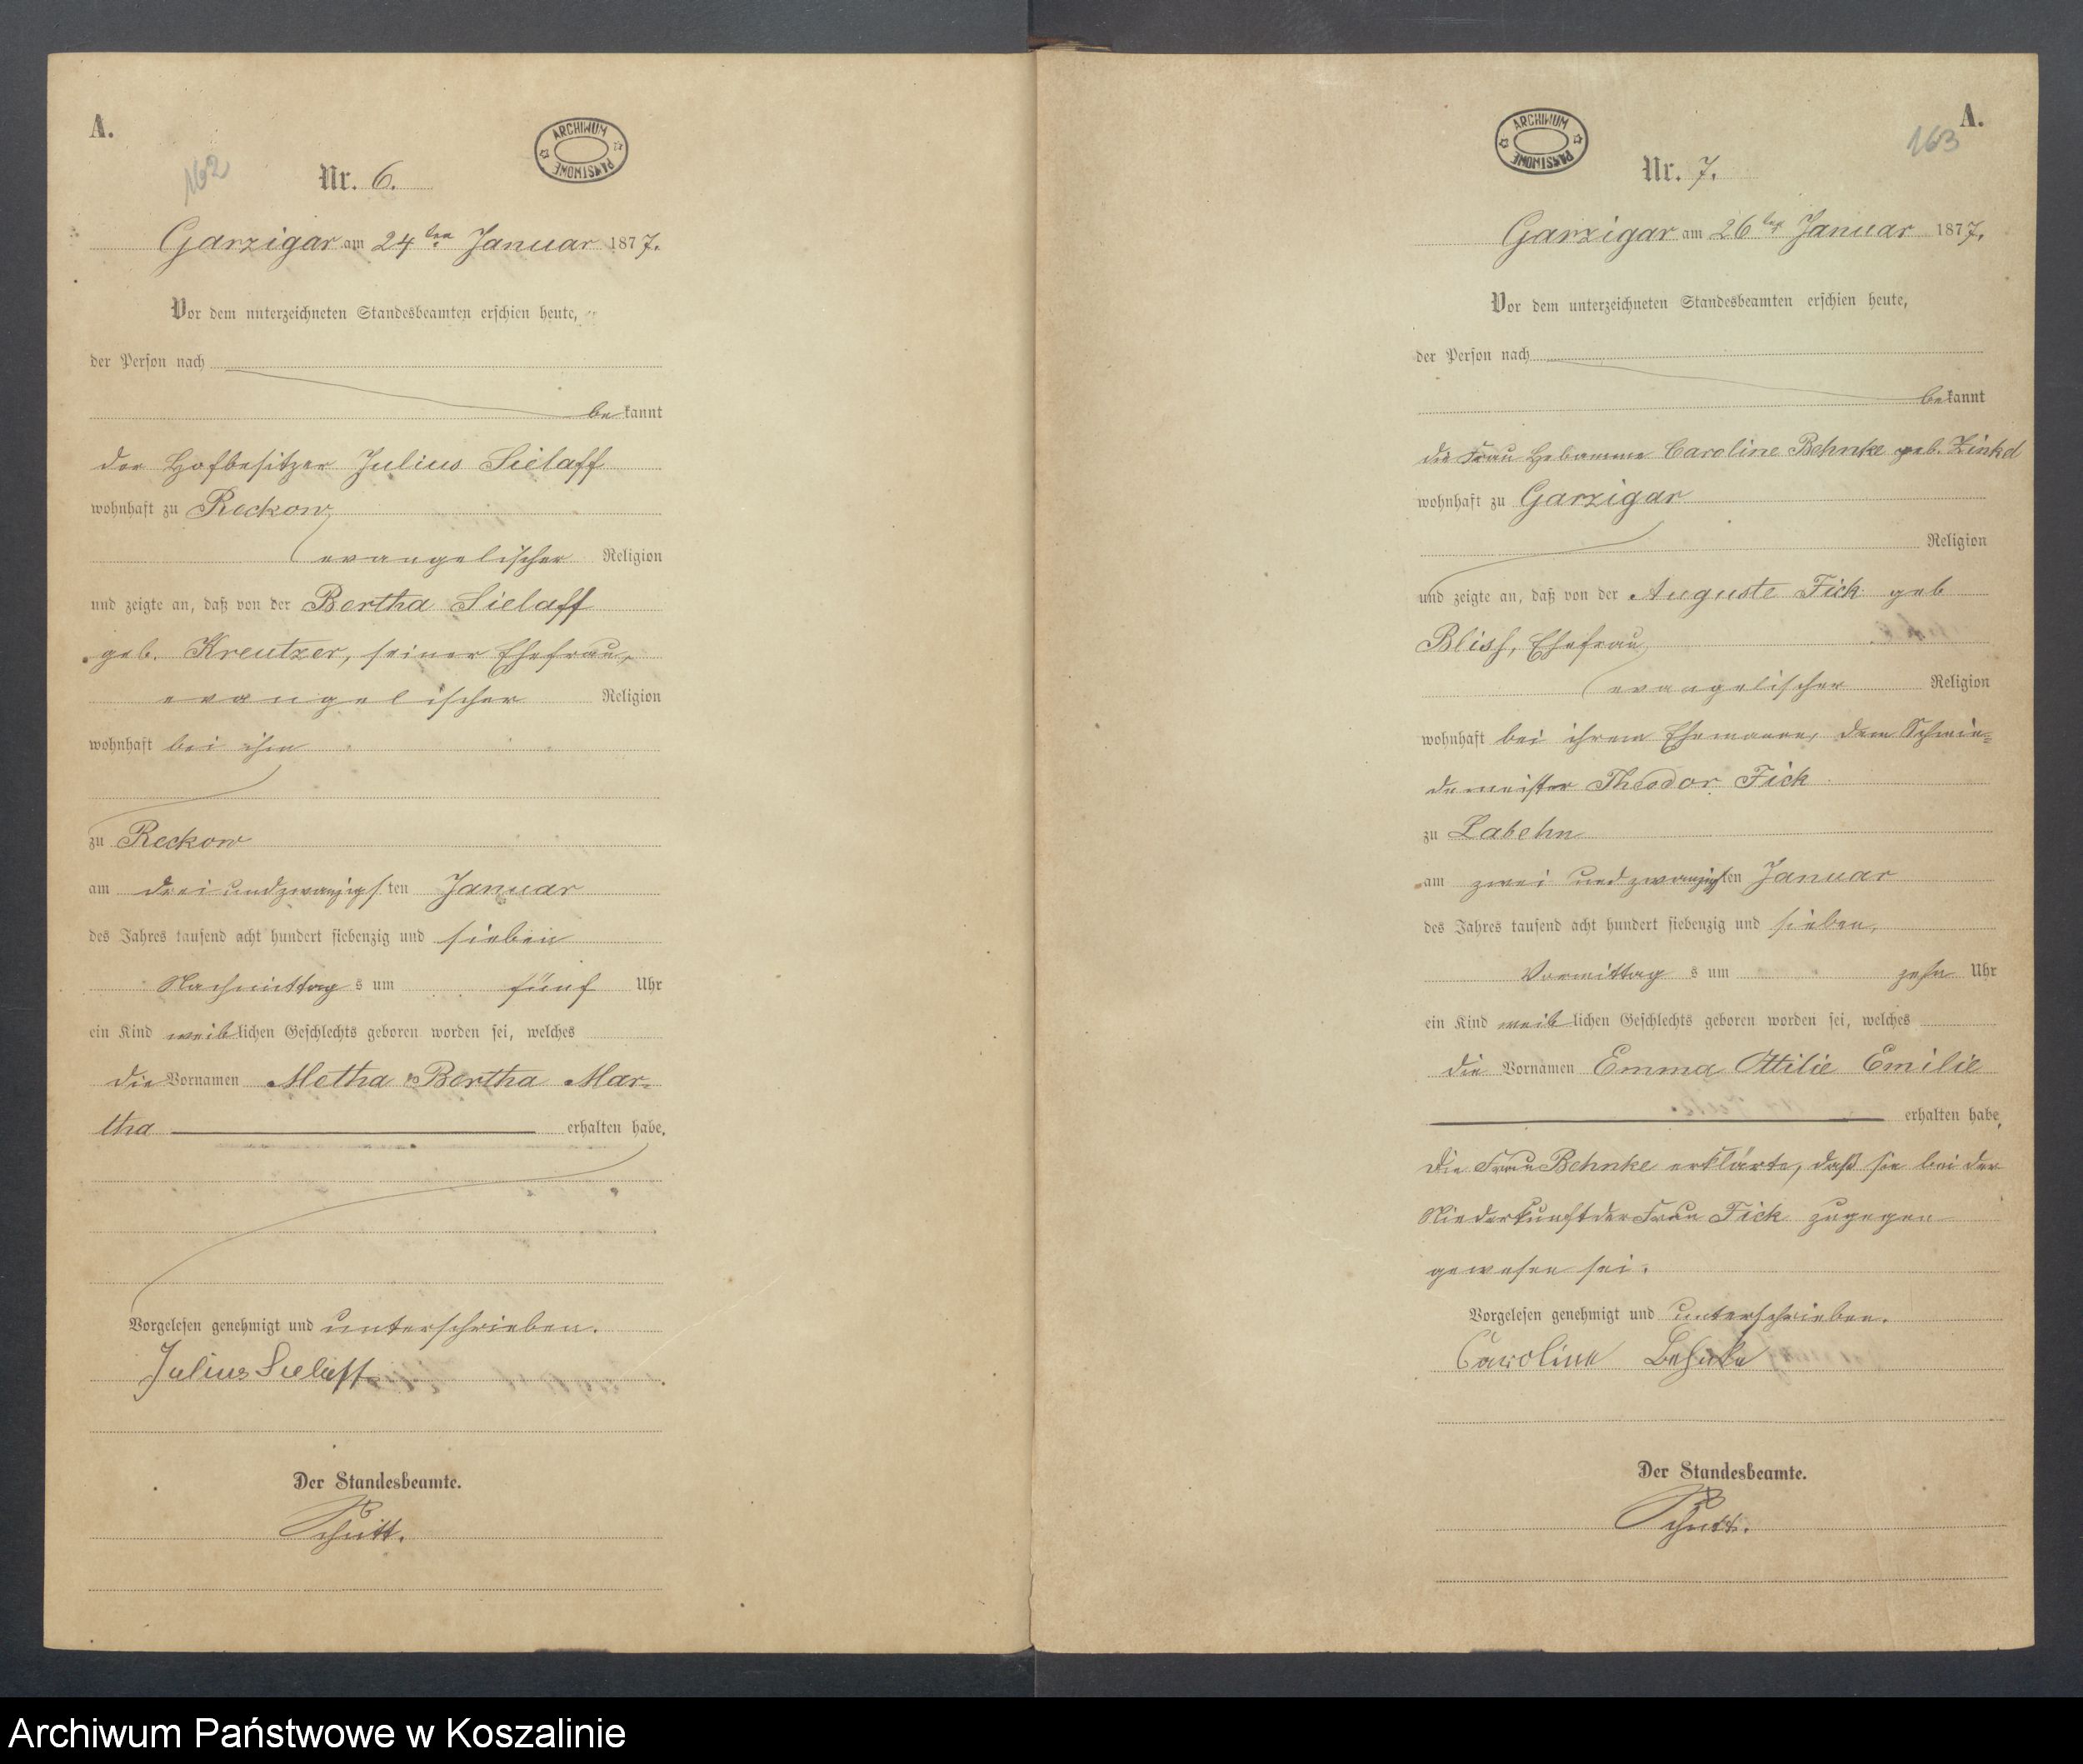 A.
162
Nr. 6.
ARCHIWUM PAŃSTWOWE
Garzigar am 24ten Januar 1877.
Vor dem unterzeichneten Standesbeamten erschien heute,
der Person nach
bekannt
der Hofbesitzer Julius Sielaff
wohnhaft zu Reckow,
evangelischer Religion
und zeigte an, daß von der Bertha Sielaff
geb. Kreutzer, seiner Ehefrau,
evangelischer Religion
wohnhaft bei ihm
zu Reckow
am drei und zwanzigsten Januar
des Jahres tausend acht hundert siebenzig und sieben
Nachmittags um fünf Uhr
ein Kind weiblichen Geschlechts geboren worden sei, welches
die Vornamen Metha Bertha Mar-
tha erhalten habe.
Vorgelesen genehmigt und unterschrieben.
Julius Sielaff
Der Standesbeamte.
Schütt.
A.
163
ARCHIWUM PAŃSTWOWE
Nr. 7.
Garzigar am 26ten Januar 1877.
Vor dem unterzeichneten Standesbeamten erschien heute,
der Person nach
bekannt
die Frau Hebamme Caroline Behnke geb.
wohnhaft zu Garzigar
Religion
und zeigte an, daß von der Auguste Fick geb
Bliss, Ehefrau,
evangelischer Religion
wohnhaft bei ihrem Ehemanne, dem Schmie=
demeister Theodor Fick
zu Labehn
am zwei und zwanzigsten Januar
des Jahres tausend acht hundert siebenzig und sieben,
Vormittags um zehn Uhr
ein Kind weiblichen Geschlechts geboren worden sei, welches
die Vornamen Emma Ottilie Emilie
erhalten habe,
Die Frau Behnke erklärte, daß sie bei der
Niederkunft der Frau Fick zugegen
gewesen sei.
Vorgelesen genehmigt und unterschrieben.
Caroline Behnke
Der Standesbeamte.
Schütt.
Archiwum Państwowe w Koszalinie